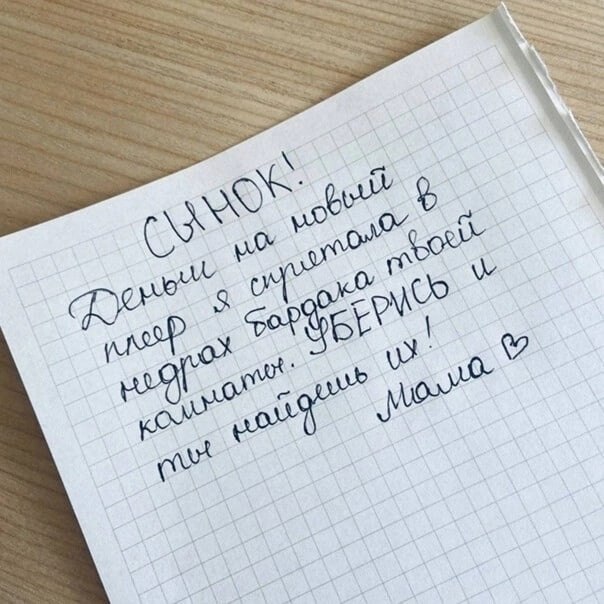 СЫНОК!
Деньги на новый
плеер я спрятала в
недрах бардака твоей
комнаты. УБЕРИСЬ и
ты найдешь их!
Мама ♡